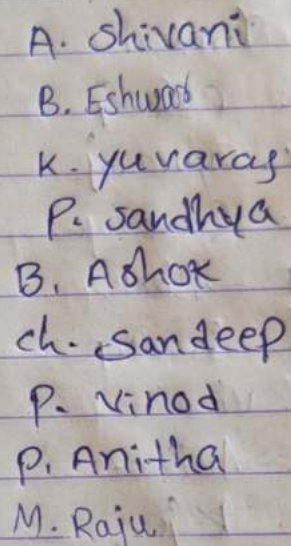 A. Shivani
B. Eshwar
K. yuvaraj
P. sandhya
B. Ashok
ch. Sandeep
P. vinod
P. Anitha
M. Raju